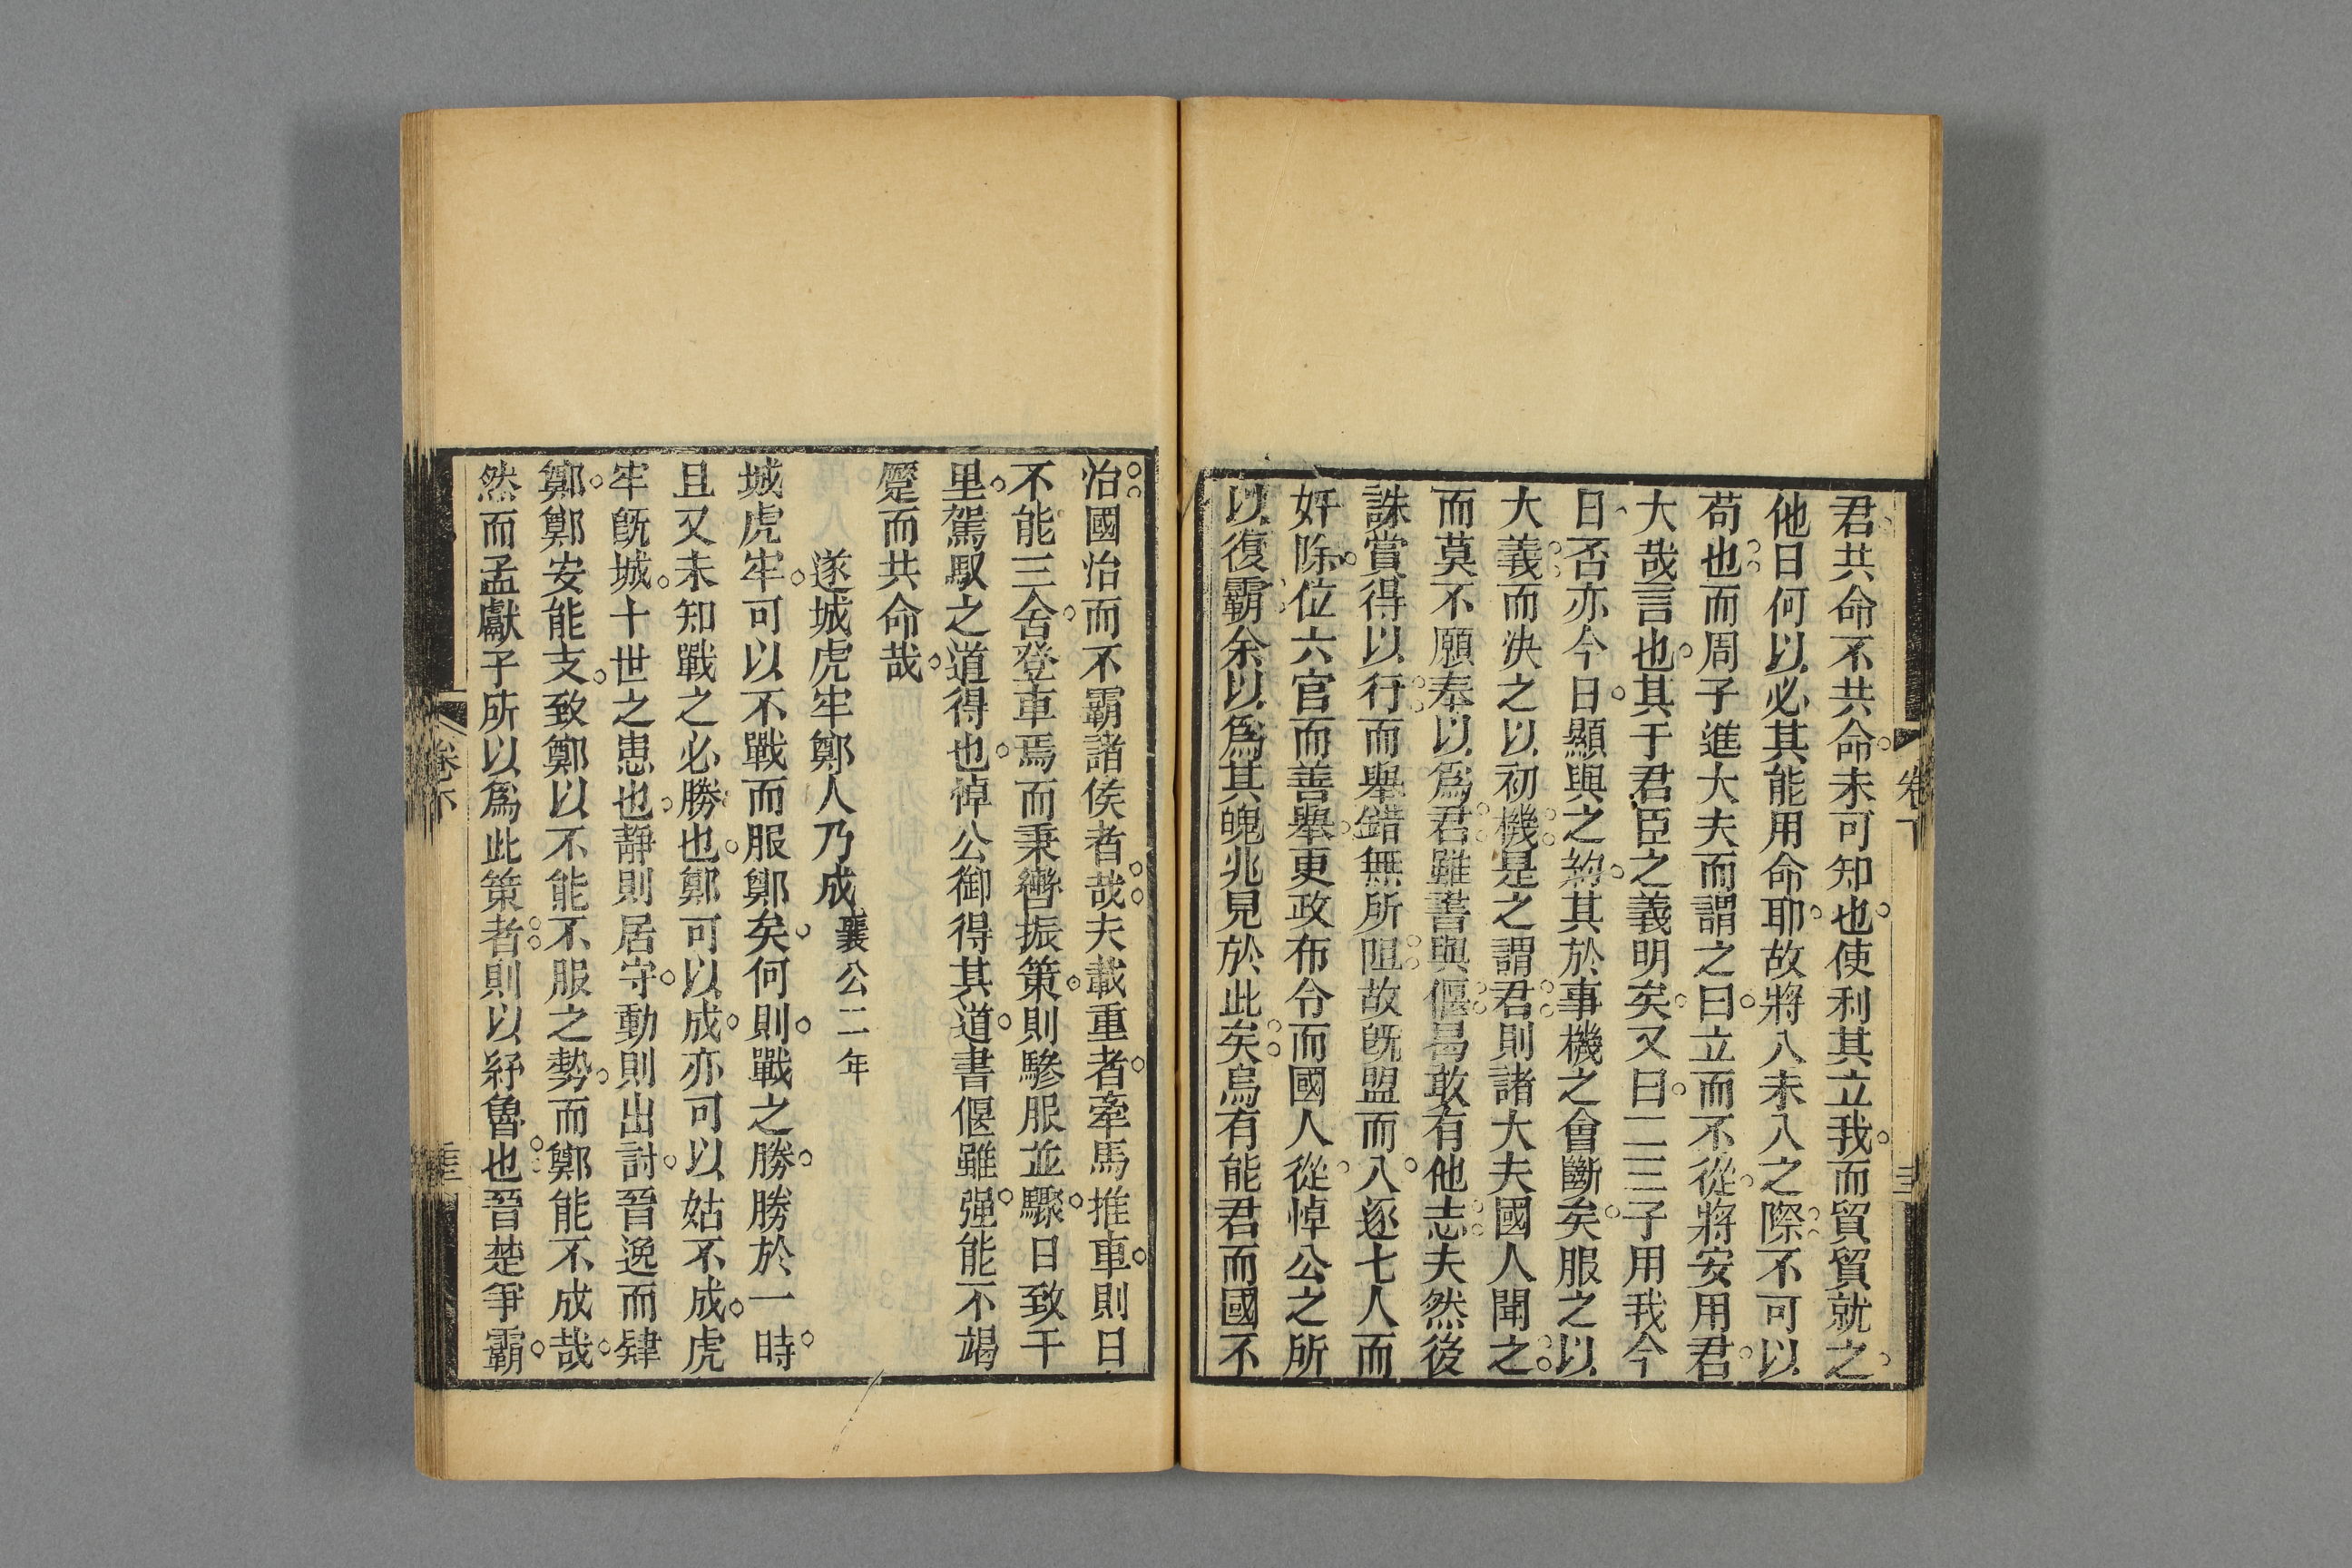 君共命不共命未可知也使利其立我而貿貿就之
他日何以必其能用命耶故將入未入之際不可以
苟也而周子進大夫而謂之曰立而不從將安用君
大哉言也其于君臣之義明矣又曰二三子用我今
日否亦今日顯與之約其於事機之會斷矣服之以
大義而決之以初機是之謂君則諸大夫國人聞之
而莫不願奉以爲君雖書與偃曷敢有他志夫然後
誅賞得以行而舉錯無所阻故旣盟而入逐七人而
奸除位六官而善舉更政布令而國人從悼公之所
以復霸余以爲其魄兆見於此矣烏有能君而國不
卷下
治國治而不霸諸侯者哉夫載重者牽馬推車則日
不能三舍登車焉而秉轡振策則驂服並驟日致千
里駕馭之道得也悼公御得其道書偃雖强能不竭
蹷而共命哉
遂城虎牢鄭人乃成襄公二年
城虎牢可以不戰而服鄭矣何則戰之勝勝於一時
且又未知戰之必勝也鄭可以成亦可以姑不成虎
牢旣城十世之患也靜則居守動則出討晉逸而肄
鄭鄭安能支致鄭以不能不服之勢而鄭能不成哉
然而孟獻子所以爲此策者則以紓魯也晉楚爭霸
卷下